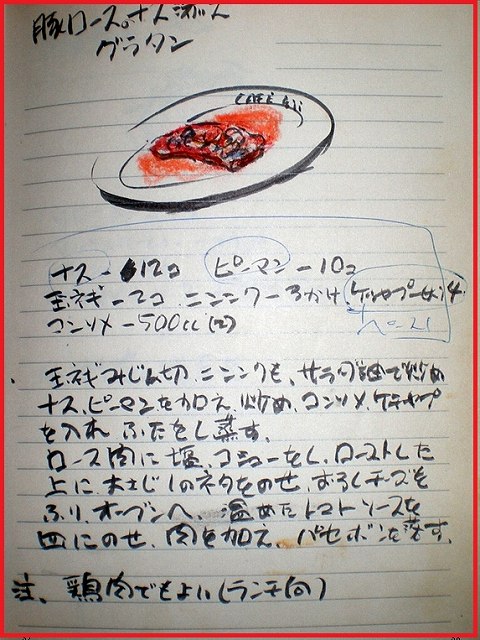 豚ロースのナスのせ
グラタン
CAFE
ナス-12コ ピーマン-10コ
玉ネギ-2コ ニンニク-3かけ ケチャップ-
コンソメ-500cc
玉ネギみじん切、ニンニクも、サラダ油で炒め
ナス、ピーマンを加え、炒め、コンソメ、ケチャップ
を入れ ふたをし蒸す。
ロース肉に塩、コショーをし、ローストした
上に、大さじ1のネタをのせ、おろしチーズを
ふり、オーブンへ、温めたトマトソースを
皿にのせ、肉を加え、パセ を落す。
注、鶏肉でもよい(ランチ向)